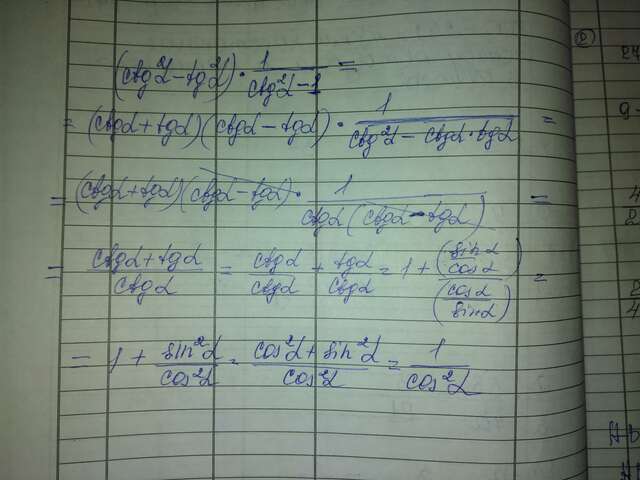 (ctg²α - tg²α) · 1/(ctg²α - 1) =
= (ctgα + tgα)(ctgα - tgα) · 1/(ctg²α - ctgα · tgα) =
= (ctgα + tgα)(ctgα - tgα) · 1/(ctgα(ctgα - tgα)) =
= (ctgα + tgα)/ctgα = ctgα/ctgα + tgα/ctgα = 1 + (sinα/cosα)/(cosα/sinα) =
= 1 + sin²α/cos²α = (cos²α + sin²α)/cos²α = 1/cos²α
②
27
9-
4
2
8
4